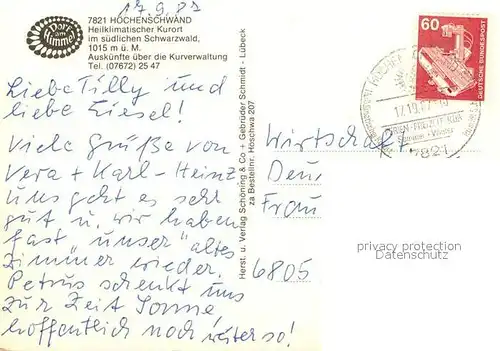 17.9.87
Dorf am Himmel
7821 HÖCHENSCHWAND
Heilklimatischer Kurort
im südlichen Schwarzwald,
1015 m ü. M.
Auskünfte über die Kurverwaltung
Tel. (07672) 25 47
Liebe Tilly und
liebe Liesel!
Viele Grüße von
Vera + Karl-Heinz
Uns geht es sehr
gut u. wir haben
fast „unser" altes
Zimmer wieder.
Petrus schenkt uns
zur Zeit Sonne,
hoffentlich noch weiter so!
Herst. u. Verlag Schöning & Co + Gebrüder Schmidt - Lübeck
za Bestellnr. Höschwa 207
60
DEUTSCHE BUNDESPOST
7821
Wirtschaft
Frau
6805
privacy protection
Datenschutz